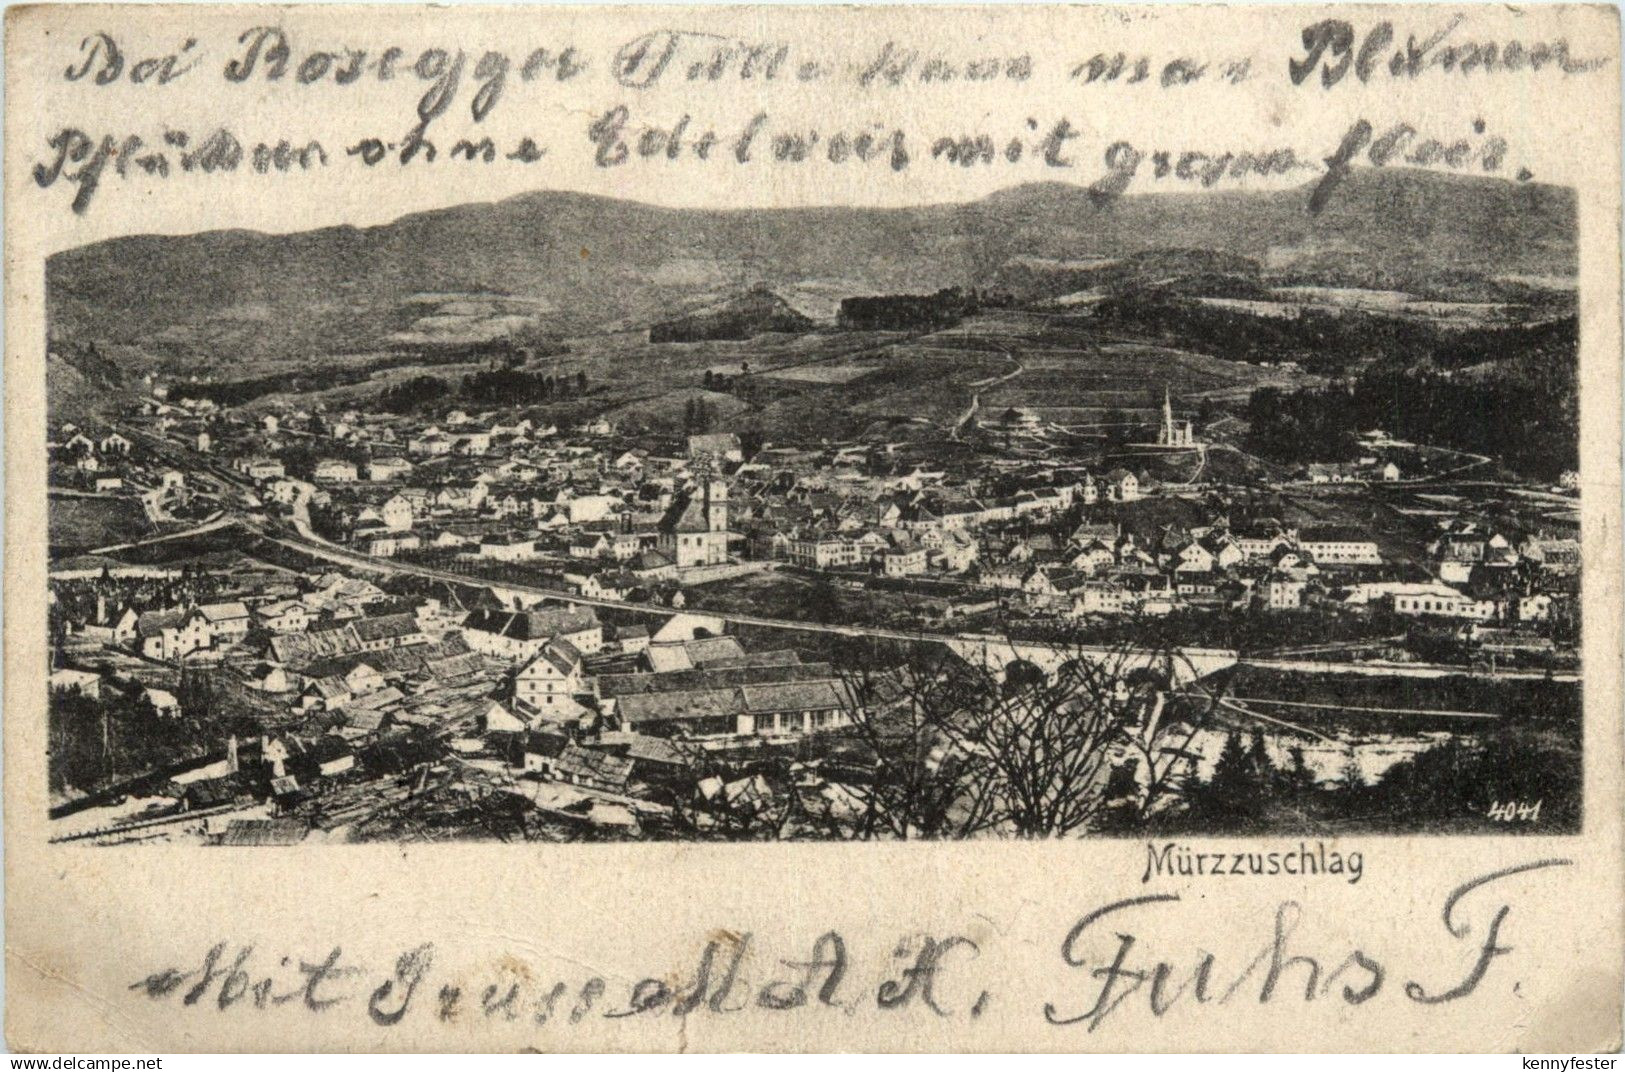 Bei Rosegger kann man Blumen
Pflüken ohne Edelweis mit
4041
Mürzzuschlag
Mit Gruss M A K. Fuhs F.
www.delcampe.net
kennyfester